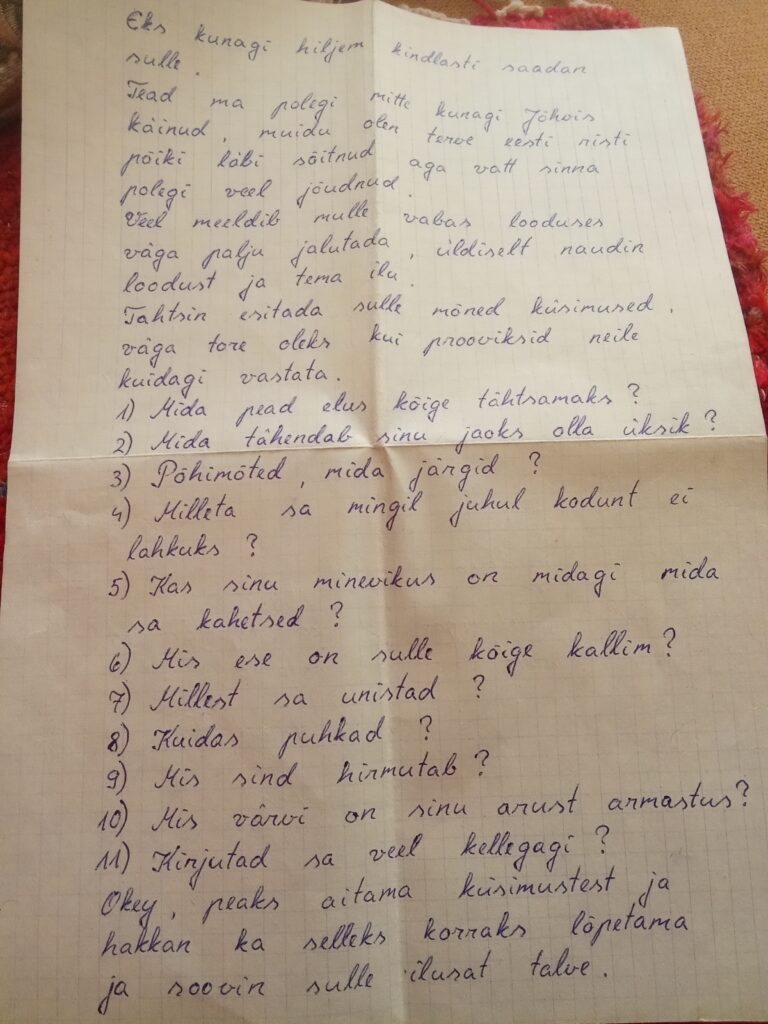 Eks kunagi hiljem kindlasti saadan
sulle.
Tead ma polegi mitte kunagi Jõhvis
käinud, muidu olen terve eesti risti
põiki läbi sõitnud aga vatt sinna
polegi veel jõudnud.
Veel meeldib mulle vabas looduses
väga palju jalutada, üldiselt naudin
loodust ja tema ilu.
Tahtsin esitada sulle mõned küsimused,
väga tore oleks kui prooviksid neile
kuidagi vastata.
1) Mida pead elus kõige tähtsamaks?
2) Mida tähendab sinu jaoks olla üksik?
3) Põhimõted, mida järgid?
4) Milleta sa mingil juhul kodunt ei
lahkuks?
5) Kas sinu minevikus on midagi mida
sa kahetsed?
6) Mis ese on sulle kõige kallim?
7) Millest sa unistad?
8) Kuidas puhkad?
9) Mis sind hirmutab?
10) Mis värvi on sinu arust armastus?
11) Kirjutad sa veel kellegagi?
Okey, peaks aitama küsimustest ja
hakkan ka selleks korraks lõpetama
ja soovin sulle ilusat talve.